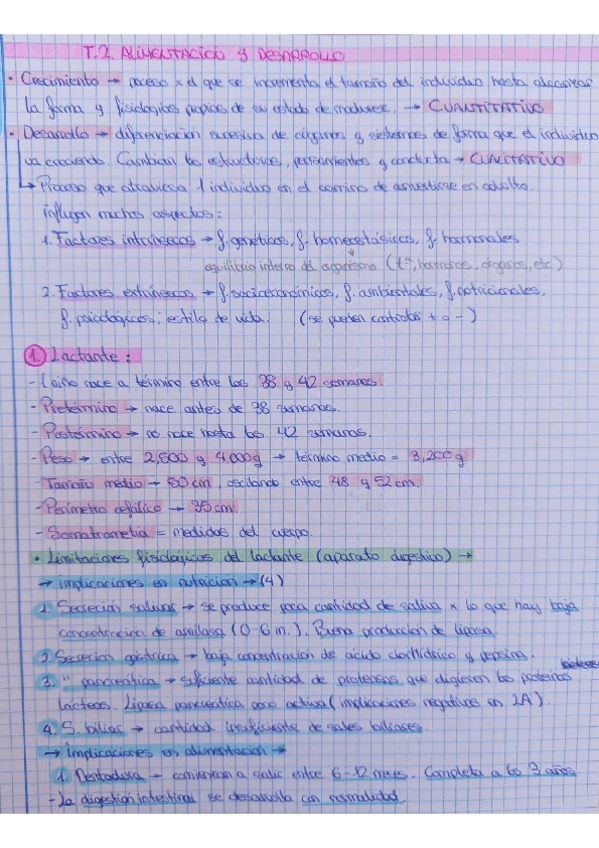 T.2. ALIMENTACIÓN y DESARROLLO
• Crecimiento → proceso x el que se incrementa el tamaño del individuo hasta alcanzar
la forma y fisiología propias de su estado de madurez. → CUANTITATIVO
• Desarrollo → diferenciación sucesiva de órganos y sistemas de forma que el individuo
va creciendo. Cambian las estructuras, pensamientos y conducta → CUALITATIVO
↳ Proceso que atraviesa 1 individuo en el camino de convertirse en adulto.
influyen muchos aspectos:
1. Factores intrínsecos → f. genéticos, f. homeostásicos, f. hormonales
equilibrio interno del organismo (tª, hormonas, órganos, etc.)
2. Factores extrínsecos → f. socioeconómicos, f. ambientales, f. nutricionales,
f. psicológicos; estilo de vida. (se pueden controlar + o -)
1. Lactante:
- niño nace a término entre las 38 y 42 semanas.
- Pretérmino → nace antes de 38 semanas.
- Postérmino → no nace hasta las 42 semanas.
- Peso → entre 2,500 y 4,000g → término medio = 3,200g
- Tamaño medio → 50 cm, oscilando entre 48 y 52 cm.
- Perímetro cefálico → 35 cm.
- Somatometría = medidas del cuerpo.
• Limitaciones fisiológicas del lactante (aparato digestivo) →
→ implicaciones en nutrición → (4)
1. Secreción salivar → se produce poca cantidad de saliva x lo que hay baja
concentración de amilasa (0-6 m.). Buena producción de lipasa.
2. Secreción gástrica → baja concentración de ácido clorhídrico y pepsina.
3. " pancreática → suficiente cantidad de proteasas, que digieren las proteínas
lácteas. Lipasa pancreática poco activa (implicaciones negativas en LA).
4. S. biliar → cantidad insuficiente de sales biliares.
→ Implicaciones en alimentación →
1. Dentadura → comienzan a salir entre 6-12 meses. Completa a los 3 años.
- La digestión intestinal se desarrolla con normalidad.